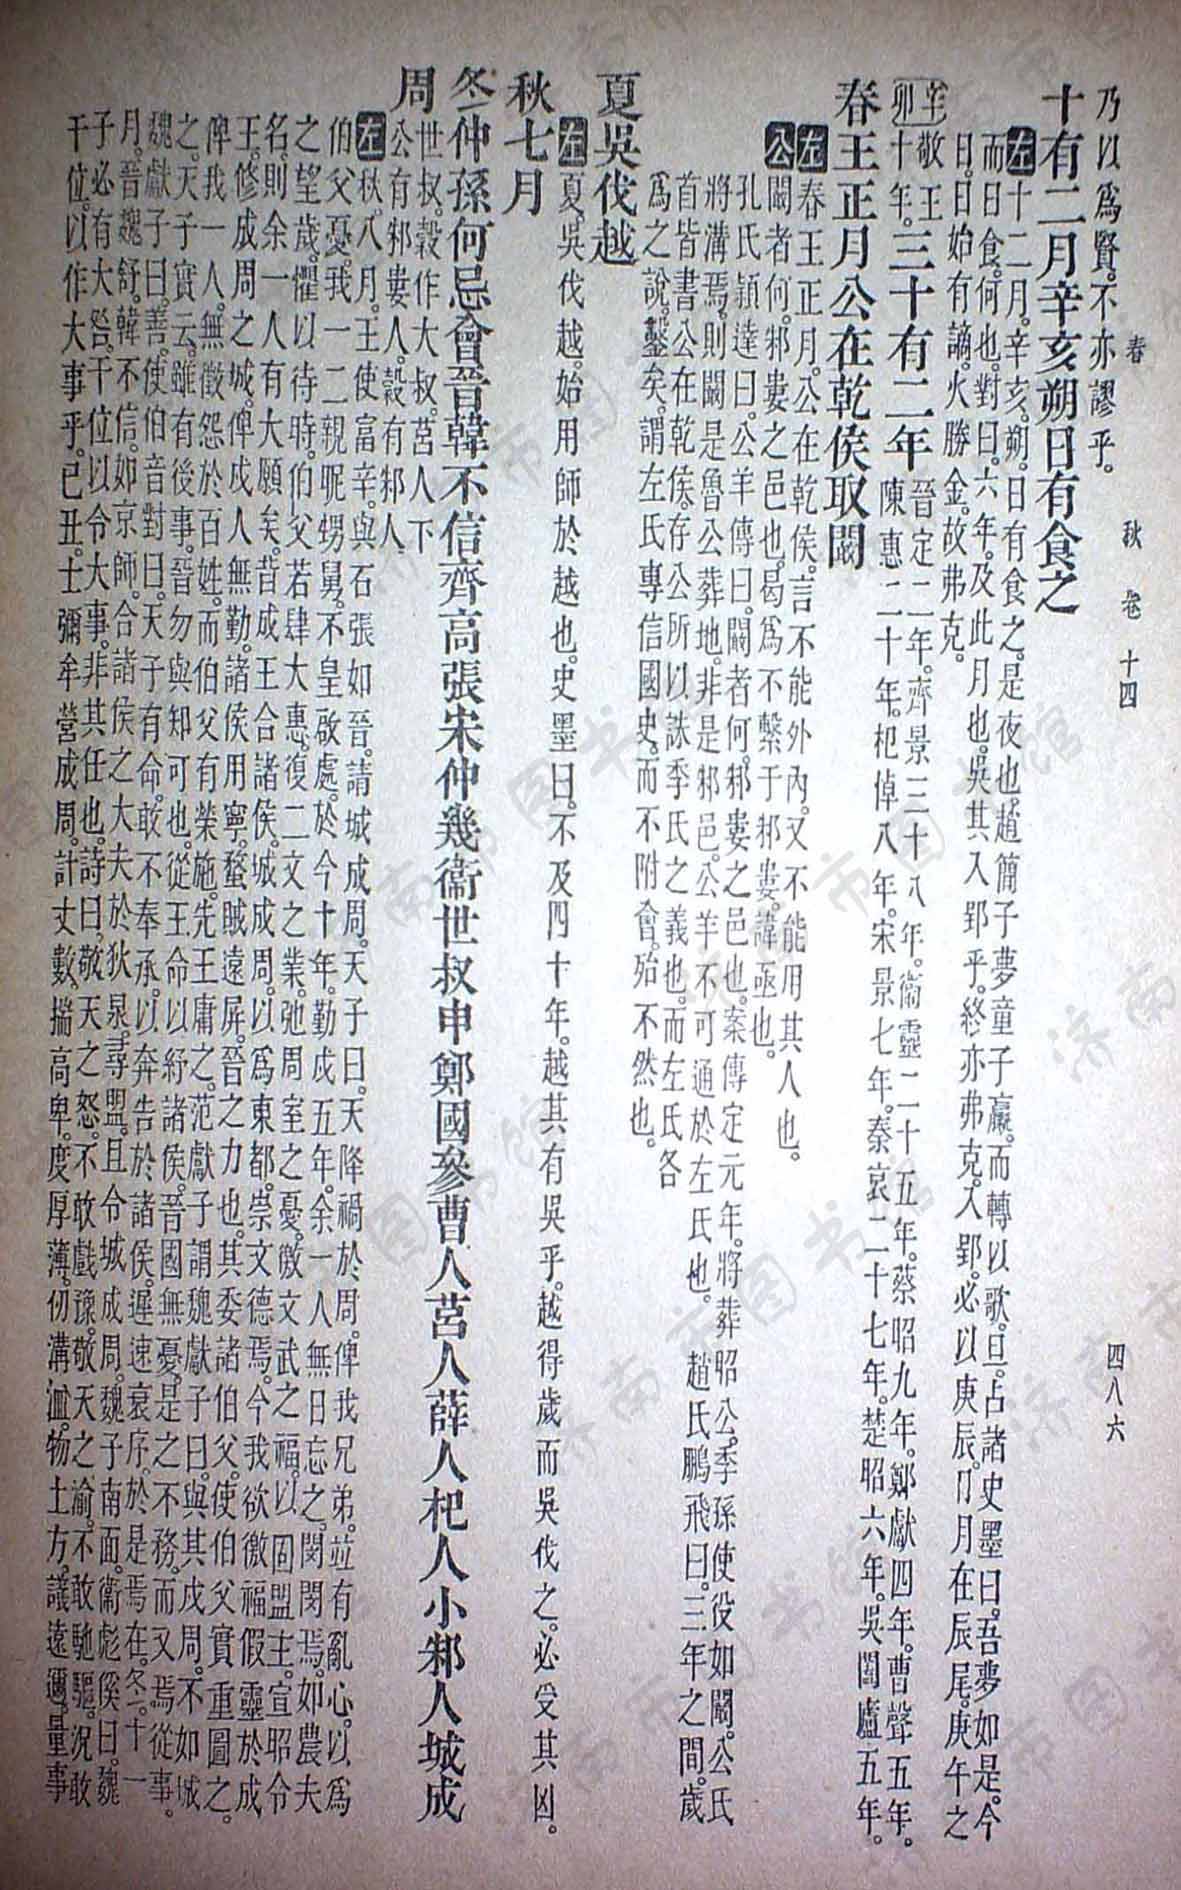 春 秋 卷十四 四八六
乃以爲賢。不亦謬乎。
十有二月辛亥朔日有食之
左 十二月。辛亥。朔。日有食之。是夜也。趙簡子夢童子臝。而轉以歌。旦。占諸史墨曰。吾夢如是。今
而日食。何也。對曰。六年。及此月也。吳其入郢乎。終亦弗克。入郢。必以庚辰。日月在辰尾。庚午之
日。日始有謫。火勝金。故弗克。
辛卯 敬王十年。三十有二年 晉定二年。齊景三十八年。衞靈二十五年。蔡昭九年。鄭獻四年。曹聲五年。
陳惠二十年。杞悼八年。宋景七年。秦哀二十七年。楚昭六年。吳闔廬五年。
春王正月公在乾侯取闞
左 春王正月。公在乾侯。言不能外內。又不能用其人也。
公 闞者何。邾婁之邑也。曷爲不繫于邾婁。諱亟也。
孔氏穎達曰。公羊傳曰。闞者何。邾婁之邑也。案傳定元年。將葬昭公。季孫使役如闞。公氏
將溝焉。則闞是魯公葬地。非是邾邑。公羊不可通於左氏也。趙氏鵬飛曰。三年之間。歲
首皆書公在乾侯。存公所以誅季氏之義也。而左氏各
爲之說。鑿矣。謂左氏專信國史。而不附會。殆不然也。
夏吳伐越
左 夏。吳伐越。始用師於越也。史墨曰。不及四十年。越其有吳乎。越得歲而吳伐之。必受其凶。
秋七月
冬仲孫何忌會晉韓不信齊高張宋仲幾衞世叔申鄭國參曹人莒人薛人杞人小邾人城成
周 世叔。穀作大叔。莒人下
公有邾婁人。穀有邾人。
左 秋。八月。王使富辛。與石張如晉。請城成周。天子曰。天降禍於周。俾我兄弟。並有亂心。以爲
伯父憂。我一二親昵甥舅。不皇啟處。於今十年。勤戍五年。余一人無日忘之。閔閔焉。如農夫
之望歲。懼以待時。伯父若肆大惠。復二文之業。弛周室之憂。徼文武之福。以固盟主。宣昭令
名。則余一人有大願矣。昔成王合諸侯。城成周。以爲東都。崇文德焉。今我欲徼福假靈於成
王。修成周之城。俾戍人無勤。諸侯用寧。蝥賊遠屏。晉之力也。其委諸伯父。使伯父實重圖之。
俾我一人。無徵怨於百姓。而伯父有榮施。先王庸之。范獻子謂魏獻子曰。與其戍周。不如城
之。天子實云。雖有後事。晉勿與知可也。從王命以紓諸侯。晉國無憂。是之不務。而又焉從事。
魏獻子曰。善。使伯音對曰。天子有命。敢不奉承。以奔告於諸侯。遲速衰序。於是焉在。冬。十一
月。晉魏舒。韓不信。如京師。合諸侯之大夫於狄泉。尋盟。且令城成周。魏子南面。衞彪傒曰。魏
子必有大咎。干位以令大事。非其任也。詩曰。敬天之怒。不敢戲豫。敬天之渝。不敢馳驅。況敢
干位。以作大事乎。已丑。士彌牟營成周。計丈數。揣高卑。度厚薄。仞溝洫。物土方。議遠邇。量事